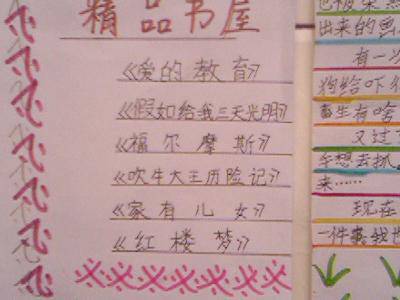 精品书屋
《爱的教育》
《假如给我三天光明》
《福尔摩斯》
《吹牛大王历险记》
《家有儿女》
《红楼梦》
出来的
有一次
狗给吓
畜生有啥
又过
想去抓
来……
现在
一件